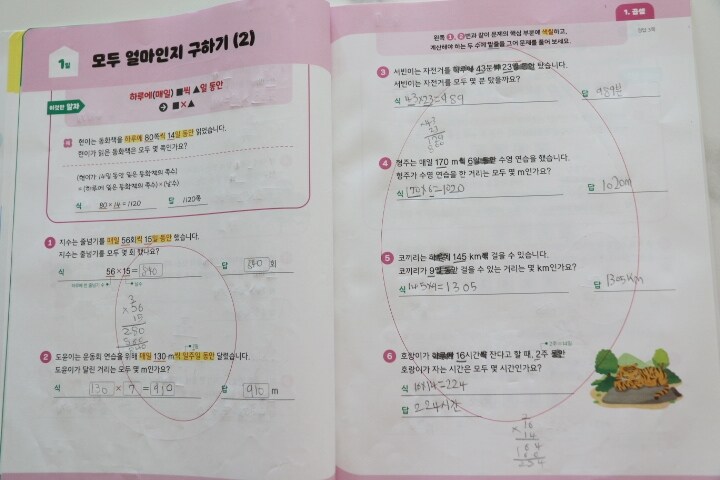 1일
모두 얼마인지 구하기 (2)
하루에(매일) ■씩 ▲일 동안
➔ ■×▲
현이는 동화책을 하루에 80쪽씩 14일 동안 읽었습니다.
현이가 읽은 동화책은 모두 몇 쪽인가요?
(현이가 14일 동안 읽은 동화책의 쪽수)
=(하루에 읽은 동화책의 쪽수)×(날수)
식 80×14=1120 답 1120쪽
1 지수는 줄넘기를 매일 56회씩 15일 동안 했습니다.
지수는 줄넘기를 모두 몇 회 했나요?
식 56×15=840 답 840 회
56
× 15
2 도윤이는 운동회 연습을 위해 매일 130 m씩 일주일 동안 달렸습니다.
도윤이가 달린 거리는 모두 몇 m인가요?
식 130 × 7 = 910 답 910 m
1. 곱셈
왼쪽 1, 2번과 같이 문제의 핵심 부분에 색칠하고,
계산해야 하는 두 수에 밑줄을 그어 문제를 풀어 보세요.
3 서빈이는 자전거를 하루에 43분씩 23일 동안 탔습니다.
서빈이는 자전거를 모두 몇 분 탔을까요?
식 43×23=989 답 989분
4 형주는 매일 170 m씩 6일 동안 수영 연습을 했습니다.
형주가 수영 연습을 한 거리는 모두 몇 m인가요?
식 170×6=1020 답 1020m
5 코끼리는 하루에 145 km를 걸을 수 있습니다.
코끼리가 9일 동안 걸을 수 있는 거리는 몇 km인가요?
식 145×9=1305 답 1305km
6 호랑이가 하루에 16시간씩 잔다고 할 때, 2주 동안
호랑이가 자는 시간은 모두 몇 시간인가요?
식 16×14=224
답 224시간